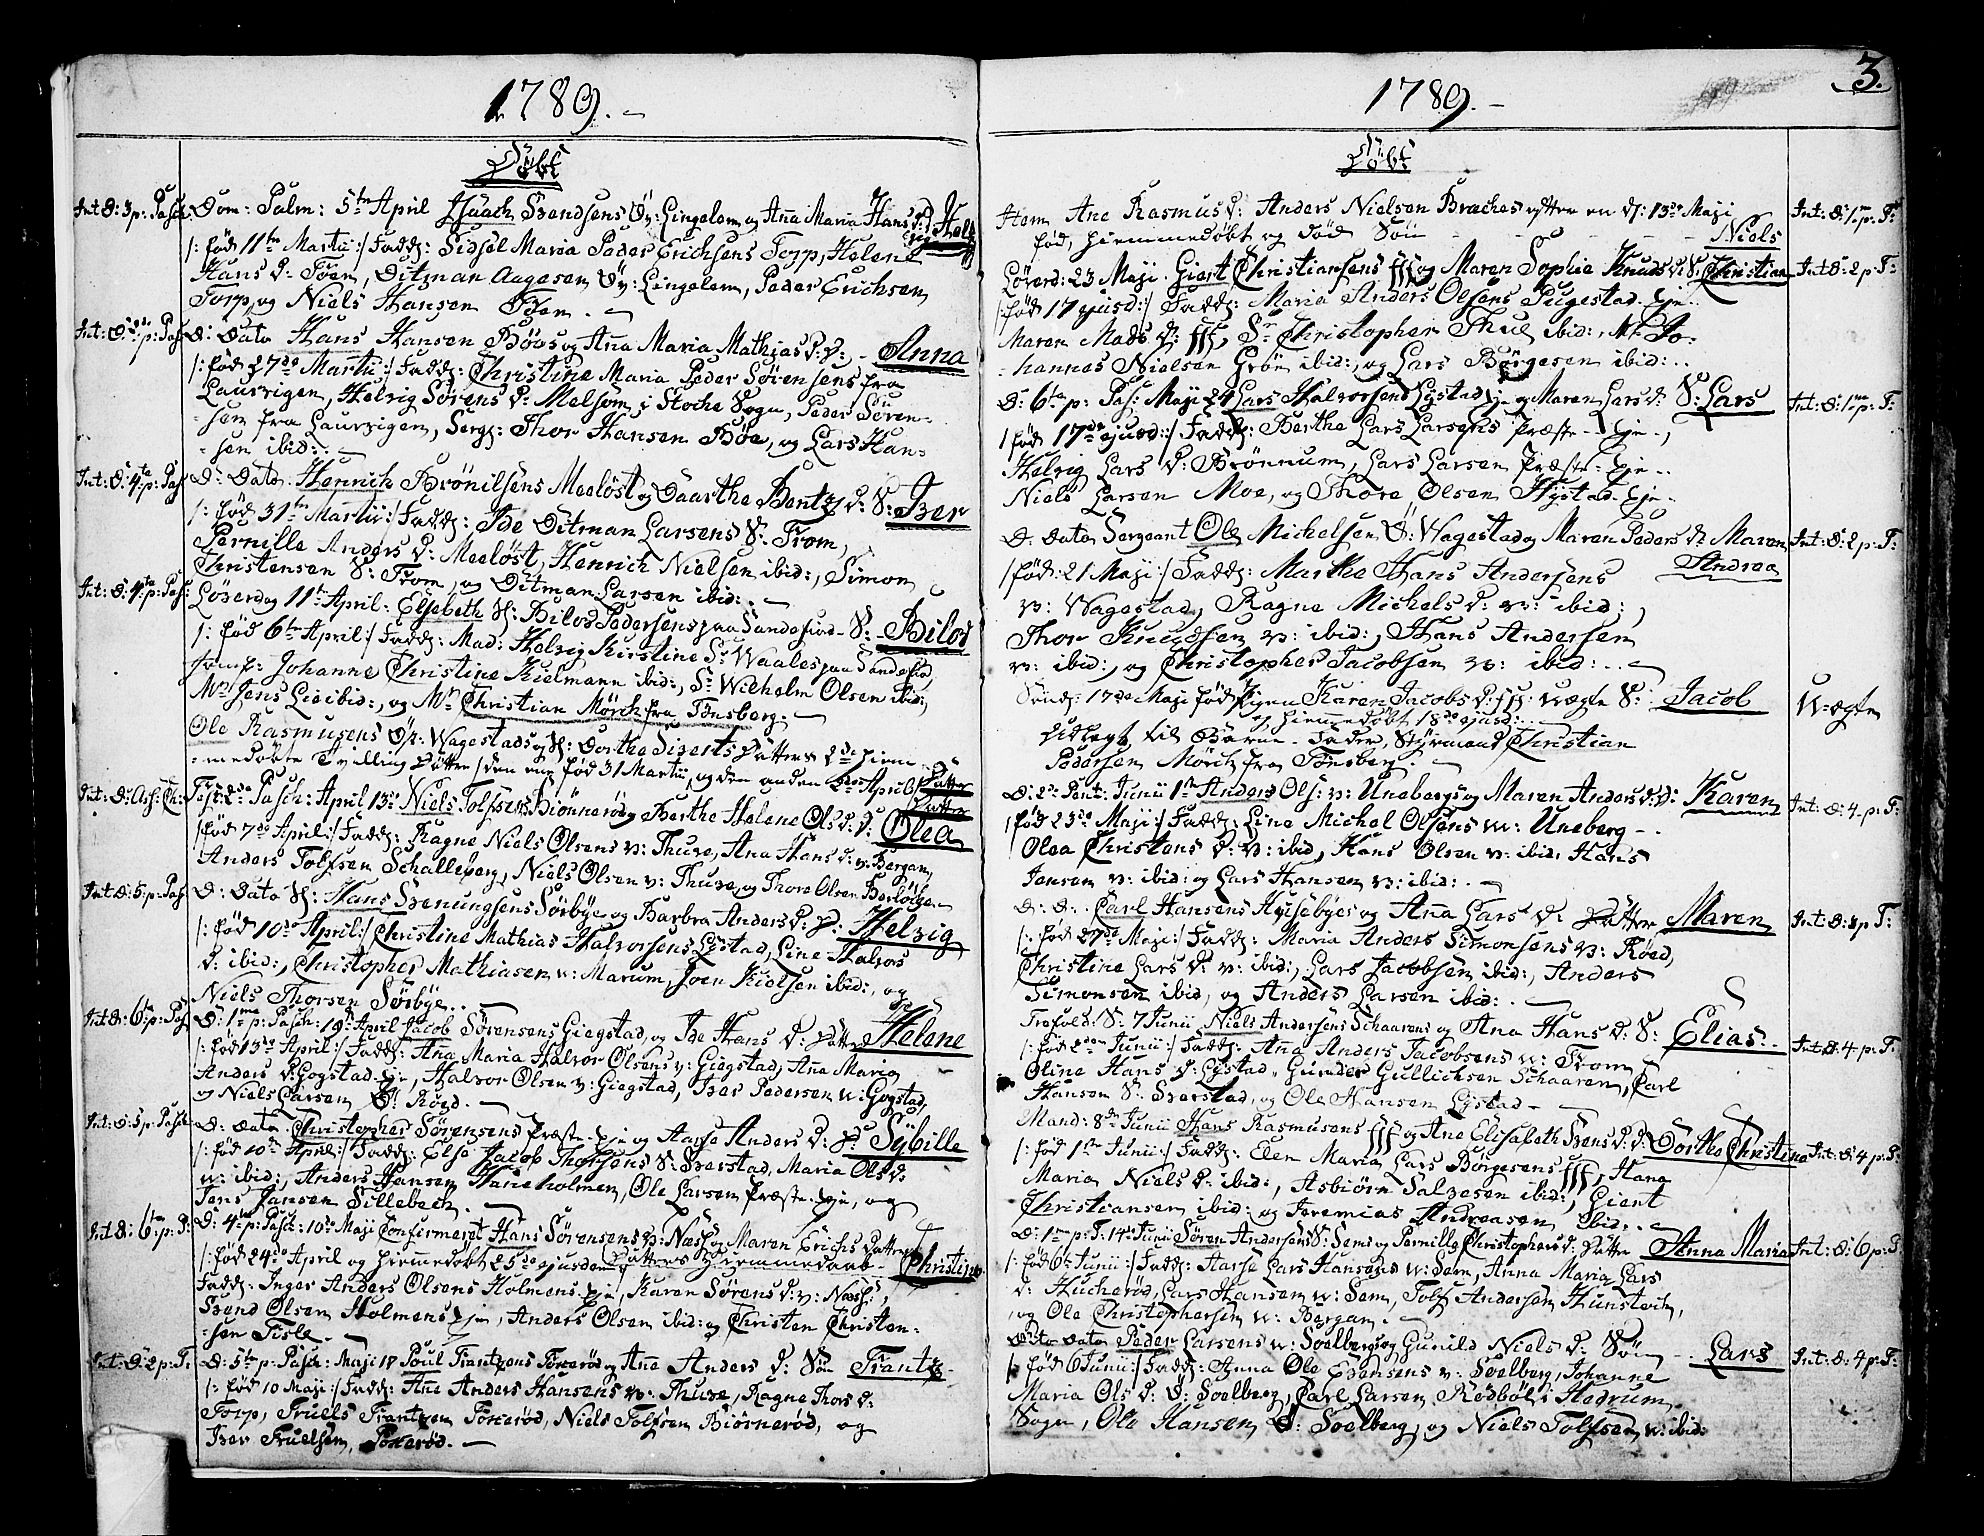 1789.
Döbt
Int: D: 3 p: Pasch: Dom: Palm: 5te April Isaach Svendsens Öv: Lingelem og Aña Maria Hans D: D:
/: föd 11te Martii :/ Fadd: Sidsel Maria Peder Erichsens Torp, Helene
Hans D: Töen, Ditman Aagesen Öv: Lingelem, Peder Erichsen
Torp, og Niels Hansen Böen.
Pasch: D: Dato Hans Hansen Böes og Aña Maria Mathias D: D: Anna
/: föd 27de Martii :/ Fadd: Christine Maria Peder Sörensens fra
Laurvigen, Helvig Sörens D: Melsom i Stoche Sogn, Peder Sören-
-sen fra Laurvigen, Serg: Thor Hansen Böe, og Lars Han-
-sen ibid:
Int: D: 4ta p: Pas: D: Dato Henrich Brönilsens Meelöst og Daarthe Bentz D: S: Iver
/: föd 31te Martii :/ Fadd: Ide Ditman Larsens S: From,
Pernille Anders D: Meelöst, Henrich Nielsen ibid:, Simon
Christensen S: From, og Ditman Larsen ibid:
Int: D: 4ta p: Pas: Löverdag 11te April: Elsebeth Sl: Bilod Pedersens paa Sandefiord S: Bilod
/: föd 6te April :/ Fadd: Mad: Helvig Kirstine Sr Waales paa Sandefiord,
Jomf: Johanne Christine Kielmann ibid:, Sr Wilhelm Olsen ibid:,
Mr Jens Lie ibid:, og Mr Christian Mörch fra Tönsberg.
Ole Rasmusens Öv: Wagestads og Sl: Dorthe Siverts Dattes 2de hiem-
-medöbte Tvilling Döttre /den eene föd 31 Martii, og den anden 2de April/ Datter
Datter
Fest: 2de Pasch: April 13de Niels Tolfsens Biönneröd og Berthe Helene Ols D: D: Olea
/: föd 7de April :/ Fadd: Ragne Niels Olsens v: Thuve, Aña Hans D: v: Bergan,
Anders Tolfsen Schalleberg, Niels Olsen v: Thuve, og Thore Olsen
Int: D: 5: p: Pas: D: Dato Sl: Hans Svenungsens Sörbye og Barbra Anders D: D: Helvig
/: föd 10de April :/ Christine Mathias Halvorsens Lystad, Line Halvors
D: ibid:, Christopher Mathiasen v: Marum, Joen Kielsen ibid:, og
Niels Thorsen Sörbye.
Int: D: 6ta p: Pas: D: 1ma p: Pasch: 19de April Jacob Sörensens Giegstad, og Ide Hans D: Datter Helene
/: föd 13de April :/ Fadd: Aña Maria Halvor Olsens v: Giegstad, Aña Maria
Anders D: Gogstad-Eje, Halvor Olsen v: Giegstad, Iver Pedersen w: Gogstad,
og Niels Larsen Ö: Röed.
Int: D: 5 p: Pasch: D: Dato Christopher Sörensens Præste-Eje og Aase Anders D: D: Sybille
/: föd 10de April :/ Fadd: Else Jacob Thorsens S: Sverstad, Maria Ols D:
w: ibid:, Anders Hansen Haneholmen, Ole Larsen Præste-Eje, og
Jens Jansen Sillebech.
Int: D: 6ta p: P: D: 4ta p: Pasch: 10de Maji Confirmeret Hans Sörensens v: Næss og Maren Erichs Datters
/: föd 24de April og hiemmedöbt 25de ejusdem Datters Hiemmedaab Christine
Fadd: Inger Anders Olsens Holmens Eje, Karen Sörens D: v: Næss:,
Svend Olsen Holmens Eje, Anders Olsen ibid: og Christen Christen-
-sen Fisle.
Int: D: 2 p: T: D: 5te p: Pasch: Maji 17 Poul Frantzens Fokeröd og Añe Anders D: Sön Frantz
/: föd 10 Maji :/ Fadd: Añe Anders Hansens v: Thuve, Ragne Thors D:
Torp, Truels Frantzen Fokeröd, Niels Tolfsen Biörneröd, og
Iver Truelsen, Fokeröd.
1789.
3.
Döbt
Hem Ane Rasmus D: Anders Nielsen Braches efter en d: 13de Maji Int: D: 1ma p: T:
föd, hiemmedöbt og död Sön Niels
Löverd: 23 Maji Giert Christiansens fff og Maren Sophie Knuds D: S: Christian Int D: 2 p: T:
/: föd 17 ejusd: :/ Fadd: Maria Anders Olsens Pugestad-Eje,
Maren Mads D: fff, Sr Christopher Thue ibid:, Mr Jo-
-hannes Nielsen Grön ibid:, og Lars Börgesen ibid:
D: 6ta p: Pas: Maji 24 Lars Halvorsens Lystad Eje og Maren Lars D: S: Lars Int: D: 1ma p: T:
/: föd 17de ejusd: :/ Fadd: Berthe Lars Larsens Præste-Eje,
Helvig Lars D: Brönnum, Lars Larsen Præste-Eje
Niels Larsen Moe, og Thore Olsen Hystad-Eje
D: Dato Sergeant Ole Michelsen Ö: Wagestad og Maren Peders D: Maren Int: D: 2 p: T:
/: föd 21 Maji :/ Fadd: Marthe Hans Andersens Andrea
v: Wagestad, Ragne Michels D: v: ibid:,
Thor Knudsen v: ibid:, Hans Andersen
v: ibid:, og Christopher Jacobsen v: ibid:
Sönd: 17de Maji föd Pigen Karen Jacobs D: fff: uægte S: Jacob Uægte
og hiemmedöbt 18de ejusd:
Udlegt til Barne-Fader, Styrmand Christian
Pedersen Mörch fra Tönsberg.
D: 2de Pent: Junii 1te Anders Ols: v: Unebergs og Maren Anders D: D: Karen Int: D: 4 p: T:
/: föd 23de Maji :/ Fadd: Line Michel Olsens w: Uneberg
Olea Christens D: v: ibid, Hans Olsen v: ibid: Hans
Jensen v: ibid: og Lars Hansen v: ibid:
D: D: Carl Hansens Husebyes og Aña Lars D: Datter Maren Int: D: 3 p T:
/: föd 27de Maji :/ Fadd: Maria Anders Simonsens v: Röed,
Christine Lars D: v: ibid:, Lars Jacobsen ibid:, Anders
Simonsen ibid, og Anders Larsen ibid:
Trefold: S: 7 Junii Niels Andersens Schaarens og Aña Hans D: S: Elias. Int D: 4 p: T:
/: föd 2den Junii :/ Fadd: Aña Anders Jacobsens w: From
Oline Hans D: Lystad, Gunder Gullichsen Schaaren, Carl
Hansen S: Sverstad, og Ole Hansen Lystad
Mand: 8de Junii Hans Rasmusens fff og Ane Elisabeth Svens D: D: Dorthe Christina Int: D: 4 p: T:
/: föd 1te Junii :/ Fadd: Elen Maria Lars Börgesens fff, Hana
Maria Niels D: ibid:, Asbiörn Salvesen ibid:, Giert
Christiansen ibid: og Jeremias Andreasen ibid:
D: 1ma p: T: 14de Junii Sören Andersens S: Sems og Pernille Christophers D: Datter Anna Maria Int: D: 6 p: T:
/: föd 6te Junii :/ Fadd: Aarse Lars Hansens w: Sem, Anna Maria Lars
D: Hucheröd, Lars Hansen w: Sem, Tolf Andersen Hunstoch,
og Ole Christophersen w: Bergan.
Dito Dato Peder Larsens w: Soelbergs og Gunild Niels D: Sön Lars Int: D: 4 p: T:
/: föd 6 Junii :/ Fadd: Anna Ole Evensens v: Soelberg, Johanne
Maria Ols D: Ö: Soelberg, Carl Larsen Rödböl i Hedrum
Sogn, Ole Hansen Ö: Soelberg, og Niels Tolfsen w: ibid: